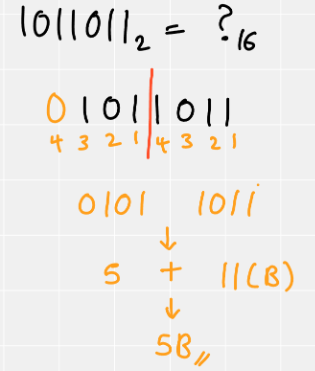 1011011₂ = ?₁₆
0101|1011
4 3 2 1 4 3 2 1
0101 1011
↓
5 + 11(B)
↓
5B//